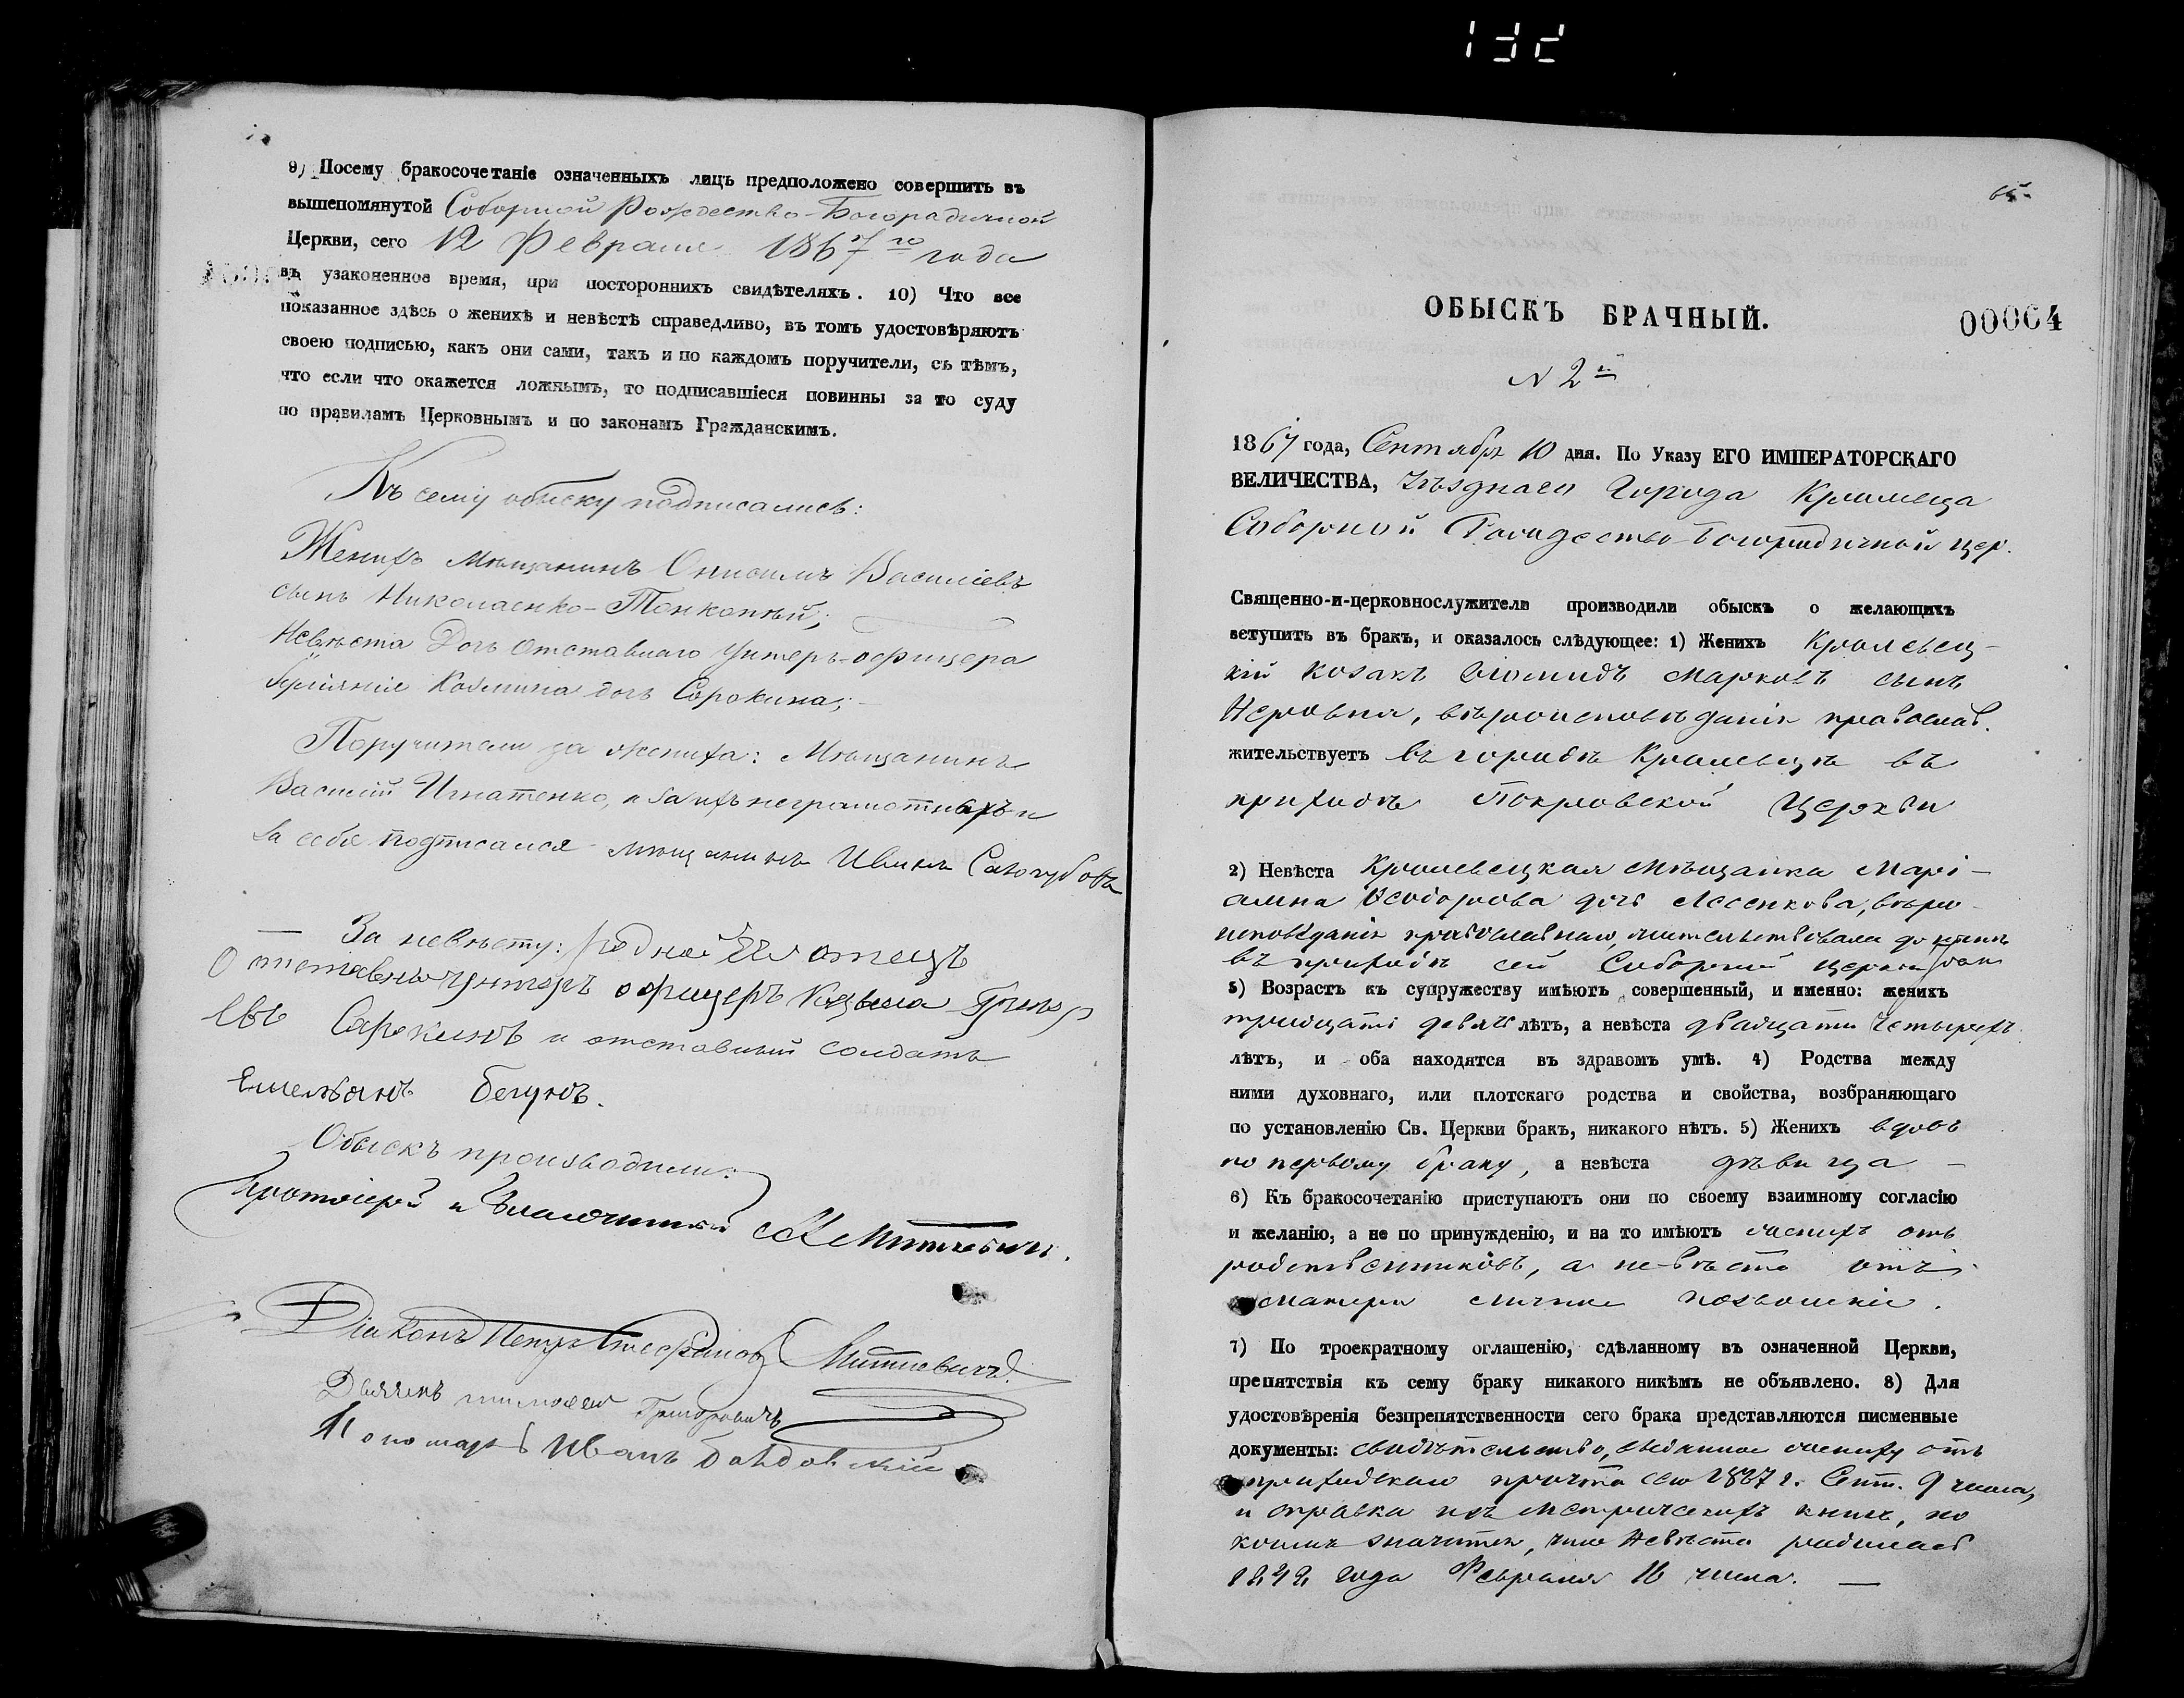 132
9) Посему бракосочетаніе означенныхъ лицъ предположено совершить въ
вышепомянутой Соборной Рождество-Богородичной
Церкви, сего 12 Февраля 1867 го года
въ узаконенное время, при постороннихъ свидѣтеляхъ. 10) Что все
показанное здѣсь о женихѣ и невѣстѣ справедливо, въ томъ удостовѣряютъ
своею подписью, какъ они сами, такъ и по каждомъ поручители, съ тѣмъ,
что если что окажется ложнымъ, то подписавшіеся повинны за то суду
по правиламъ Церковнымъ и по законамъ Гражданскимъ.
Къ сему обыску подписались:
Женихъ Мѣщанинъ Онисимъ Василіевъ
сынъ Николаенко-Тонконый;
Невѣста Дочь Отставнаго Унтеръ-офицера
Козмина дочь Сорокина;
Поручители за жениха: Мѣщанинъ
Василій Игнатенко, а за ихъ неграмотныхъ и
за себя подписался мѣщанинъ Иванъ
За невѣсту: родной Ея отецъ
Отставны унтеръ офицеръ Козьма
евъ Сарокинъ и отставный солдатъ
Емельянъ Бегунъ.
Обыскъ производили:
Протоіерей и Благочинный
Діаконъ Петръ Миткевичъ
Дьячекъ Тимофей Григоровичъ
Пономарь Иванъ
65
ОБЫСКЪ БРАЧНЫЙ.
00064
N 2й
1867 года, Сентября 10 дня. По Указу ЕГО ИМПЕРАТОРСКАГО
ВЕЛИЧЕСТВА, Уѣзднаго Города Кролевца
Соборной Рождество-Богородичной цер.
Священно-и-церковнослужители производили обыскъ о желающихъ
вступить въ бракъ, и оказалось слѣдующее: 1) Женихъ Кролевец-
кій козакъ Діомидъ Марковъ сынъ
Неровня, вѣроисповѣданія православ.
жительствуетъ въ городѣ Кролевцѣ въ
приходѣ Покровской Церкви
2) Невѣста Кролевецкая мѣщанка Марі-
амна Ѳеодорова дочь Лесенкова, вѣро-
исповѣданія православнаго, жительствовала до нынѣ
въ приходѣ сей Соборной церкви
3) Возрастъ къ супружеству имѣютъ совершенный, и именно: женихъ
тридцать девять лѣтъ, а невѣста двадцати четырехъ
лѣтъ, и оба находятся въ здравомъ умѣ. 4) Родства между
ними духовнаго, или плотскаго родства и свойства, возбраняющаго
по установленію Св. Церкви бракъ, никакого нѣтъ. 5) Женихъ вдовъ
по первому браку, а невѣста дѣвица —
6) Къ бракосочетанію приступаютъ они по своему взаимному согласію
и желанію, а не по принужденію, и на то имѣютъ женихъ отъ
родственниковъ, а невѣста отъ
матери личное позволеніе.
7) По троекратному оглашенію, сдѣланному въ означенной Церкви,
препятствія къ сему браку никакого никѣмъ не объявлено. 8) Для
удостовѣренія безпрепятственности сего брака представляются писменные
документы: свидѣтельство, выданное жениху отъ
приходскаго причта сего 1867 г. Сент. 9 числа,
и справка изъ метрическихъ книгъ, по
коимъ значится, что Невѣста родилась
1842 года Февраля 16 числа. —